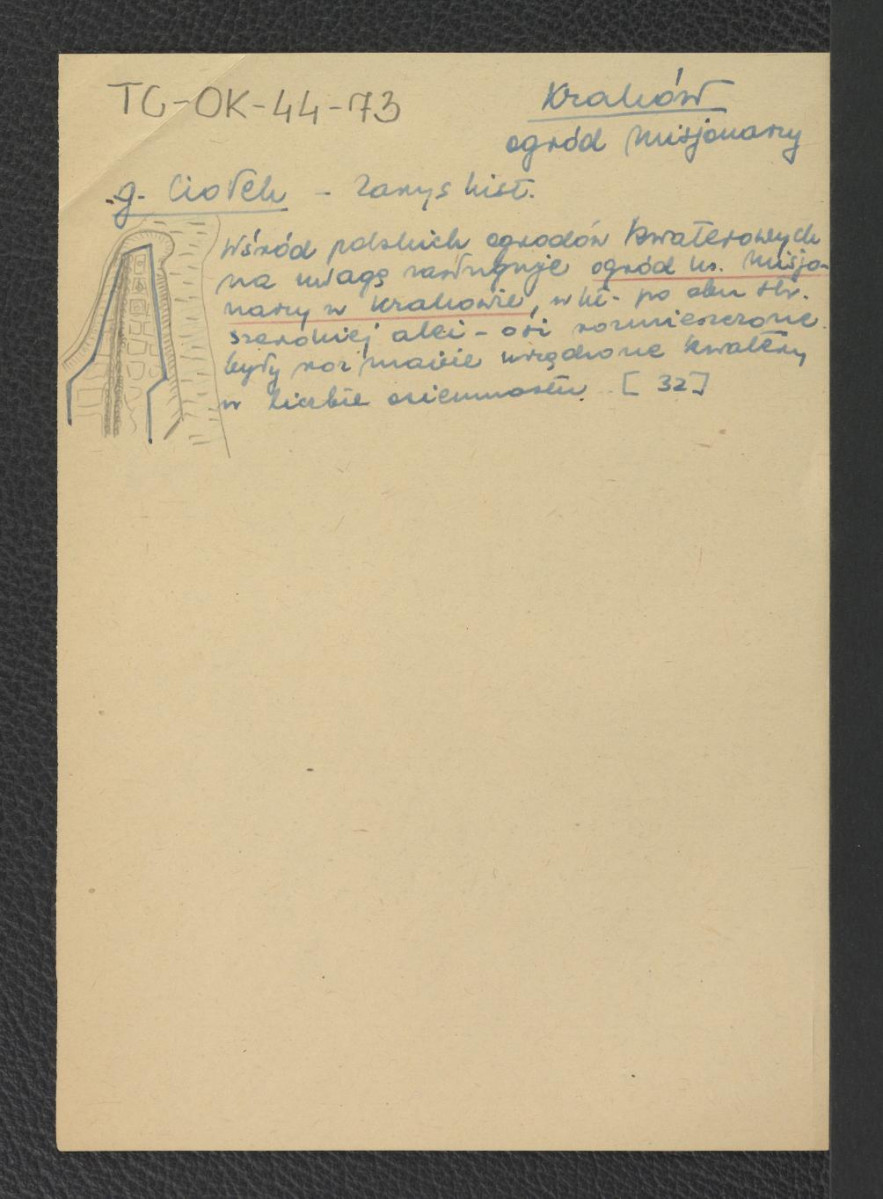 TG-OK-44-73
Kraków
ogród Misjonarzy
g. Ciołek - Zarys hist.
Wśród polskich ogrodów kwaterowych
na uwagę zasługuje ogród ks. Misjo-
narzy w Krakowie, w kt. po obu str.
szerokiej alei - osi rozmieszczone
były rozmaicie urządzone kwatery
w liczbie osiemnastu. [32]